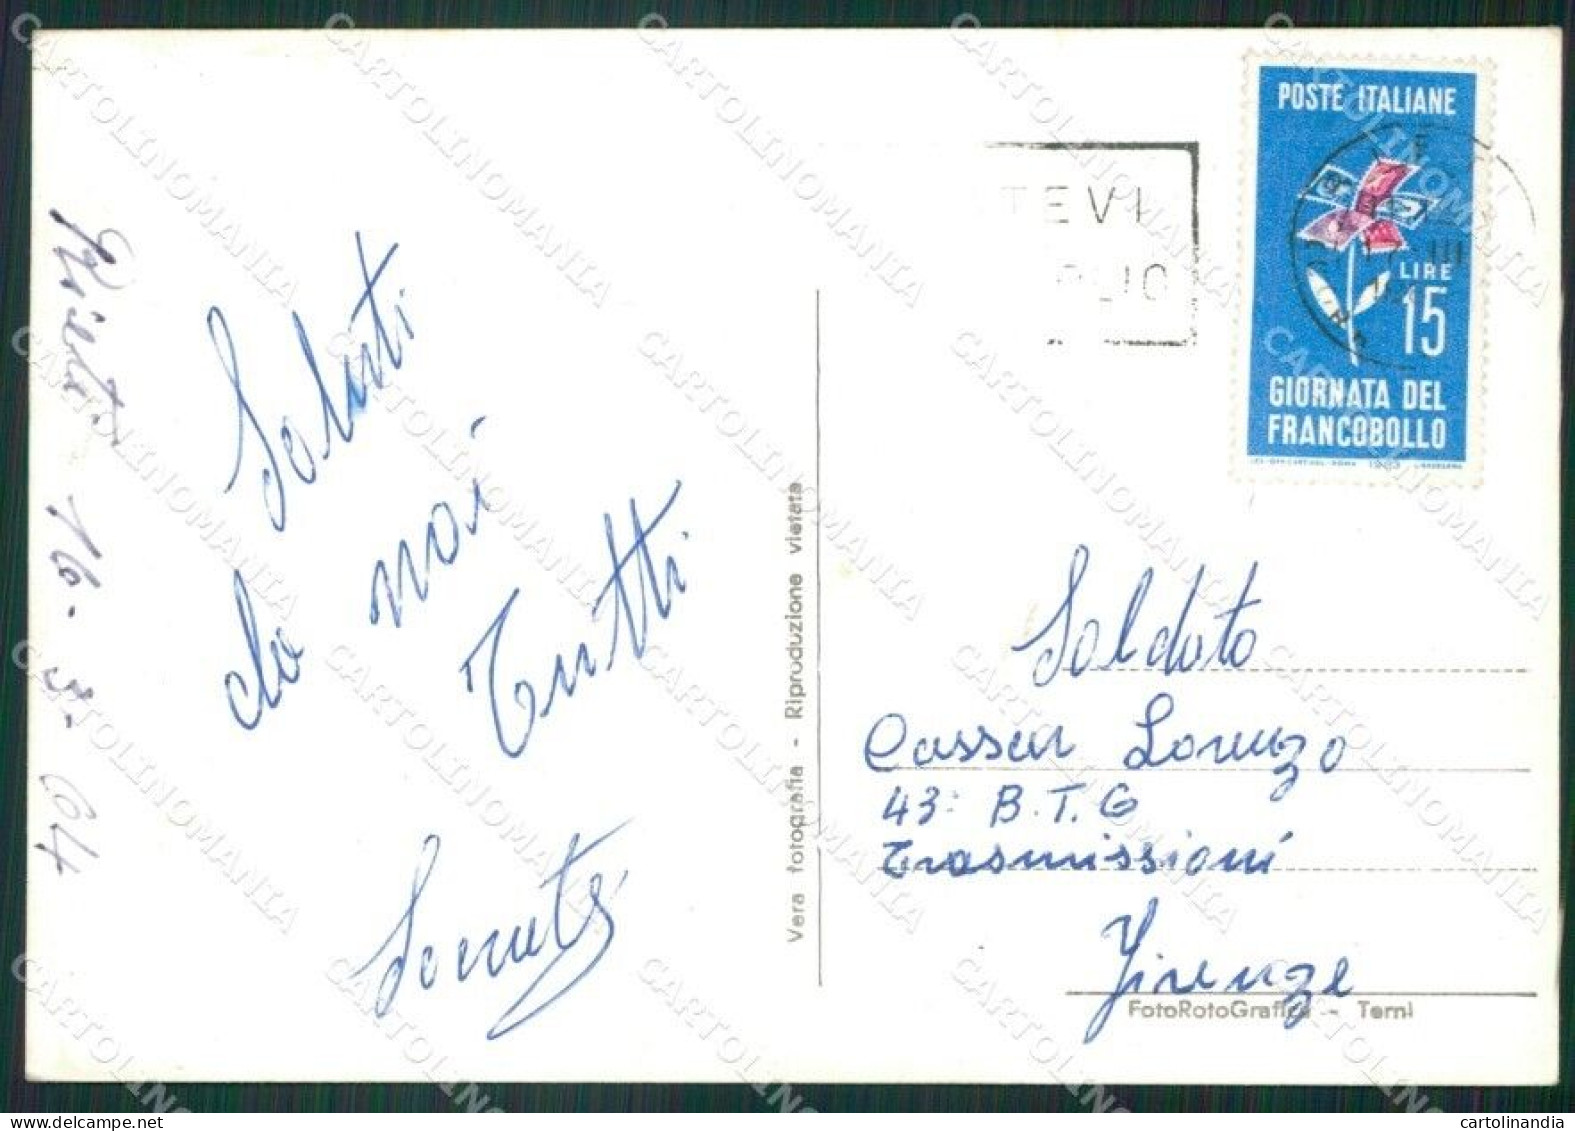 POSTE ITALIANE
LIRE
15
GIORNATA DEL
FRANCOBOLLO
1963
TEVI
Rieti 16-3-64
Saluti
da noi
Tutti
Vera fotografia - Riproduzione vietata
Soldato
Casser Lorenzo
43: B.T.G
Trasmissioni
Firenze
FotoRotoGrafica - Terni
CARTOLINOMANIA
cartolinandia